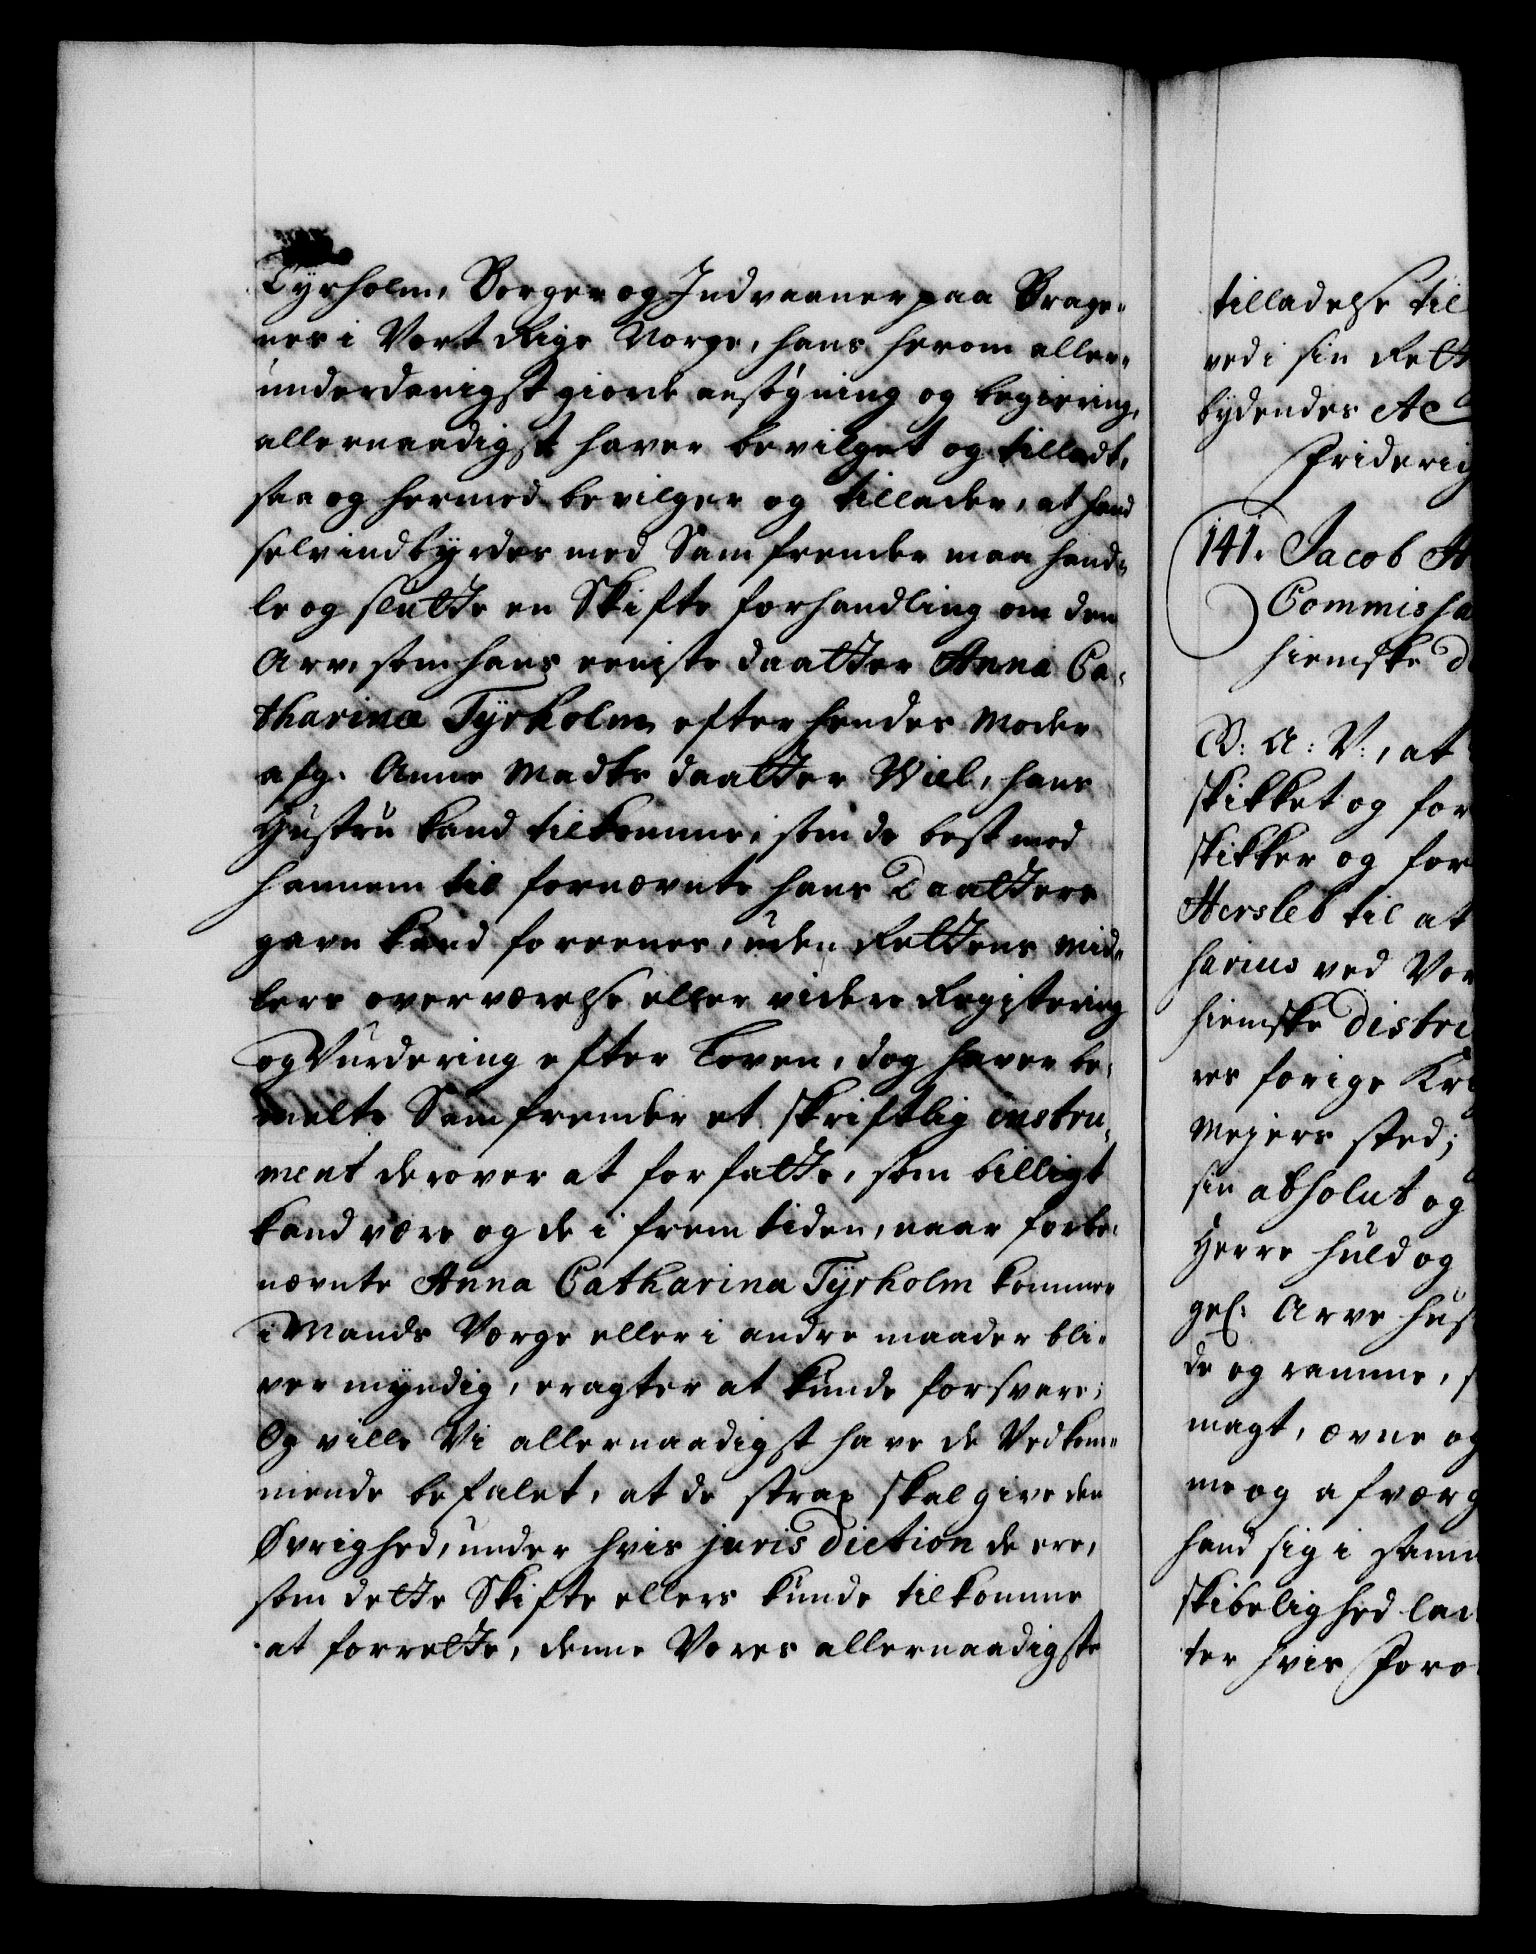 Tyrholm, Borger og Indvaaner paa Brage-
nes i Vort Rige Norge, hans herom aller-
underdanigst giorde ansøgning og begiering,
allernaadigst haver bevilget og tilladt,
saa og hermed bevilger og tillader, at hand
selvindbyrdes med Samfrender maa hand-
le og slutte en Skifte forhandling om den
Arv, som hans eeniste daatter Anna Ca-
tharina Tyrholm efter hendes Moder
afg. Anne Madts daatter Wiel, hans
Hustru kand tilkomme, som de best med
hannem til fornævnte hans Daatters
gavn kand foreenes, uden Rettens mid-
lers overværelse eller videre Registering
og Vurdering efter Loven, dog haver be-
melte Samfrender et skriftlig instru-
ment derover at forfatte, som billigt
kand være og de i fremtiden, naar forbe-
nævnte Anna Catharina Tyrholm kommer
i Mands Værge eller i andre maader bli-
ver myndig, eragter at kunde forsvare;
Og ville Vi allernaadigst have de Vedkom-
mende befalet, at de strax skal give den
Øvrighed, under hvis jurisdiction de ere,
som dette Skifte ellers kunde tilkomme
at forrette, denne Vores allernaadigste
tilladelse til
ved i sin Rett
bydendes Ac
Friderig
141. Jacob H
Commissa
hiemske d
G: A: V:, at
skikket og for
skikker og for
Hersleb til at
sarius ved Vor
hiemske distri
res forige Kri
Mejers sted;
sin absolut og
Herre huld og
gel: Arve hus
de og ramme, s
magt, ævne og
me og afværg
hand sig i samm
skibelighed lad
ter hvis Foro